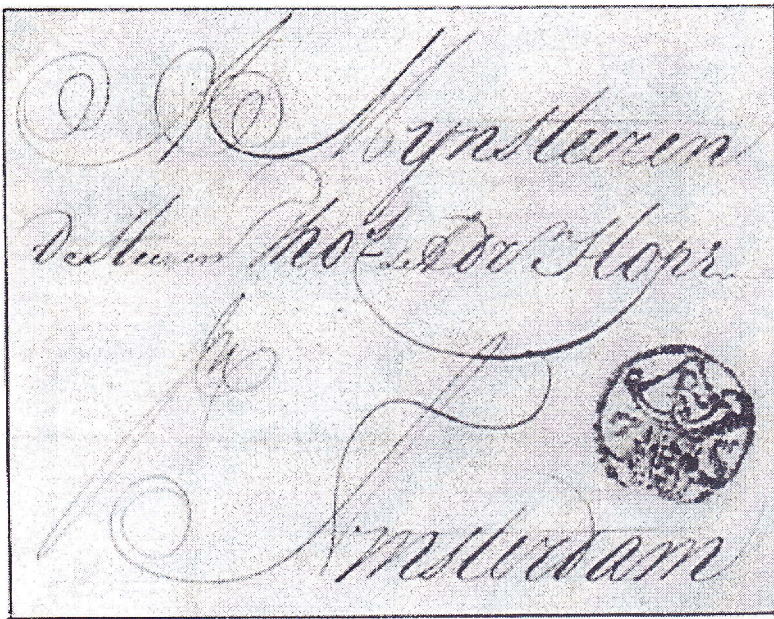 Mynsheeren
De Heeren Tho.s & Adr Hope
Amsterdam